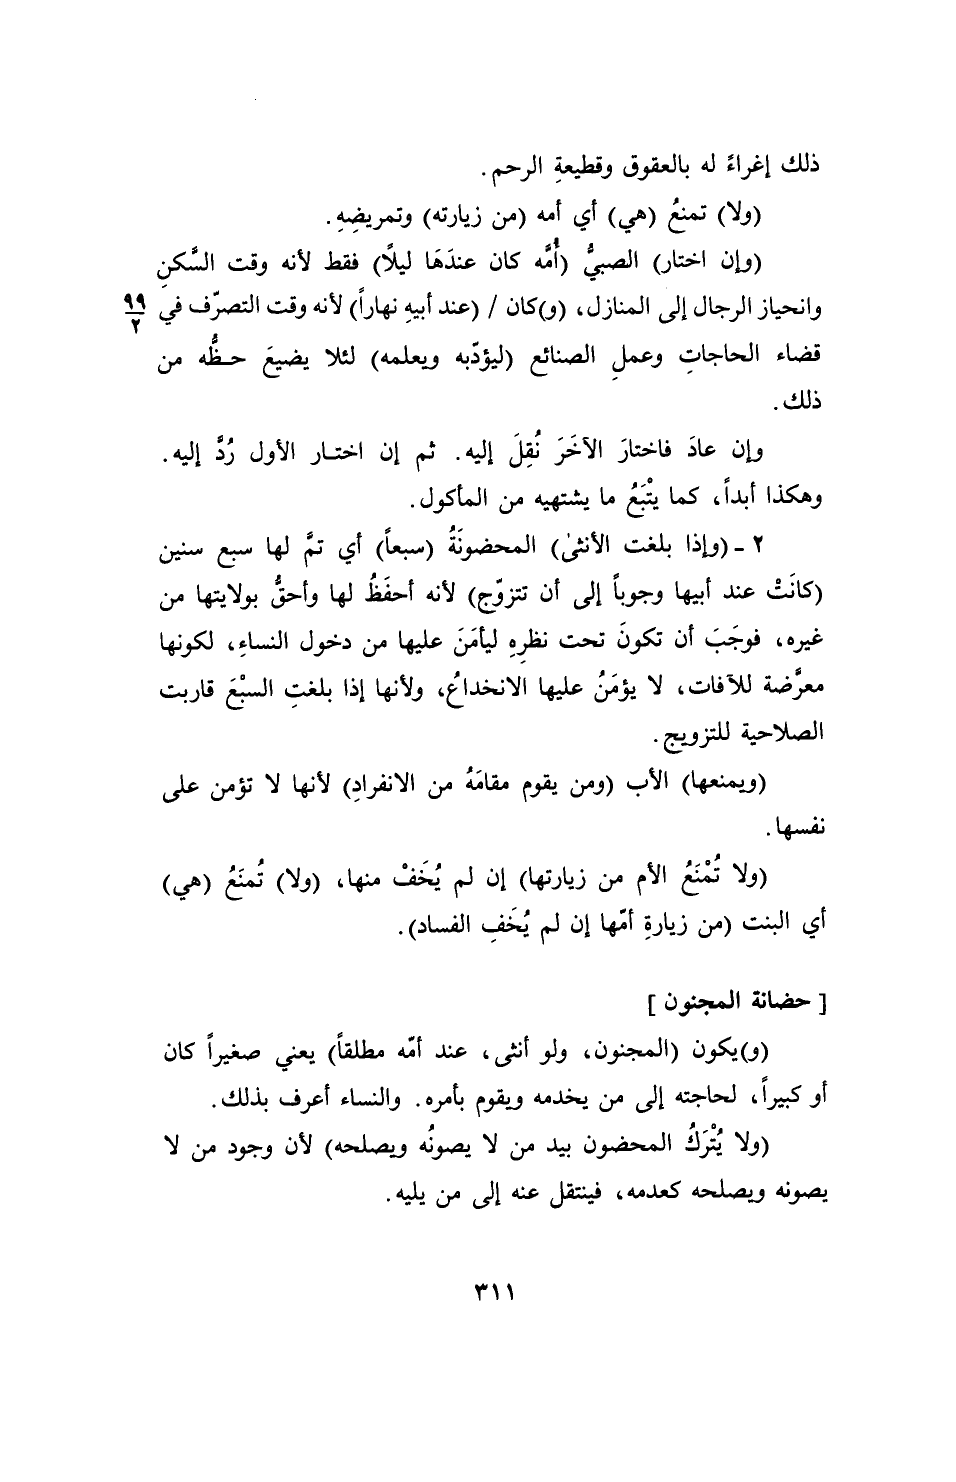 ذلك إغراءً له بالعقوق وقطيعةِ الرحم.
(ولا) تمنعُ (هي) أي أمه (من زيارته) وتمريضِهِ.
(وإن اختار) الصبيُّ (أُمَّه كان عندَهَا ليلًا) فقط لأنه وقت السَّكنِ
وانحياز الرجال إلى المنازل، (و)كان / (عند أبيهِ نهاراً) لأنه وقت التصرّف في ٩٩/٢
قضاء الحاجاتِ وعملِ الصنائع (ليؤدّبه ويعلمه) لئلا يضيعَ حظُّه من
ذلك.
وإن عادَ فاختارَ الآخَرَ نُقِلَ إليه. ثم إن اختار الأول رُدَّ إليه.
وهكذا أبداً، كما يتْبَعُ ما يشتهيه من المأكول.
٢ - (وإذا بلغت الأنثىٰ) المحضونَةُ (سبعاً) أي تمَّ لها سبع سنين
(كانَتْ عند أبيها وجوباً إلى أن تتزوّج) لأنه أحفَظُ لها وأحقُّ بولايتها من
غيره، فوجَبَ أن تكونَ تحت نظرِهِ ليأمَنَ عليها من دخول النساءِ، لكونها
معرَّضة للآفات، لا يؤمَنُ عليها الانخداعُ، ولأنها إذا بلغتِ السبْعَ قاربت
الصلاحية للتزويج.
(ويمنعها) الأب (ومن يقوم مقامَهُ من الانفرادِ) لأنها لا تؤمن على
نفسها.
(ولا تُمْنَعُ الأم من زيارتها) إن لم يُخَفْ منها، (ولا) تُمنَعُ (هي)
أي البنت (من زيارةِ أمّها إن لم يُخَفِ الفساد).
[حضانة المجنون]
(و)يكون (المجنون، ولو أنثى، عند أمّه مطلقاً) يعني صغيراً كان
أو كبيراً، لحاجته إلى من يخدمه ويقوم بأمره. والنساء أعرف بذلك.
(ولا يُتْرَكُ المحضون بيد من لا يصونُه ويصلحه) لأن وجود من لا
يصونه ويصلحه كعدمه، فينتقل عنه إلى من يليه.
٣١١